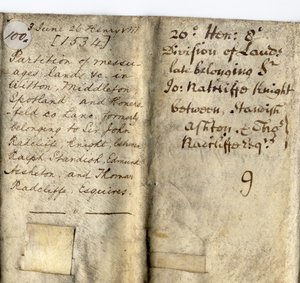 100.
3 June 26 Henry VIII
[1534]
Partition of messu-
ages, lands &c. in
Witton, Middleton
Spotland, and Honers-
feld co. Lanc. formerly
belonging to Sir John
Radcliffe Knight, between
Ralph Standish, Edmund
Assheton, and Thomas
Radcliffe, Esquires.
20º Hen: 8.
Division of Lands
late belonging Sr
Jo: Ratcliffe Knight
between, Standish
Ashton & Tho:
Ratcliffe Esqrs
9